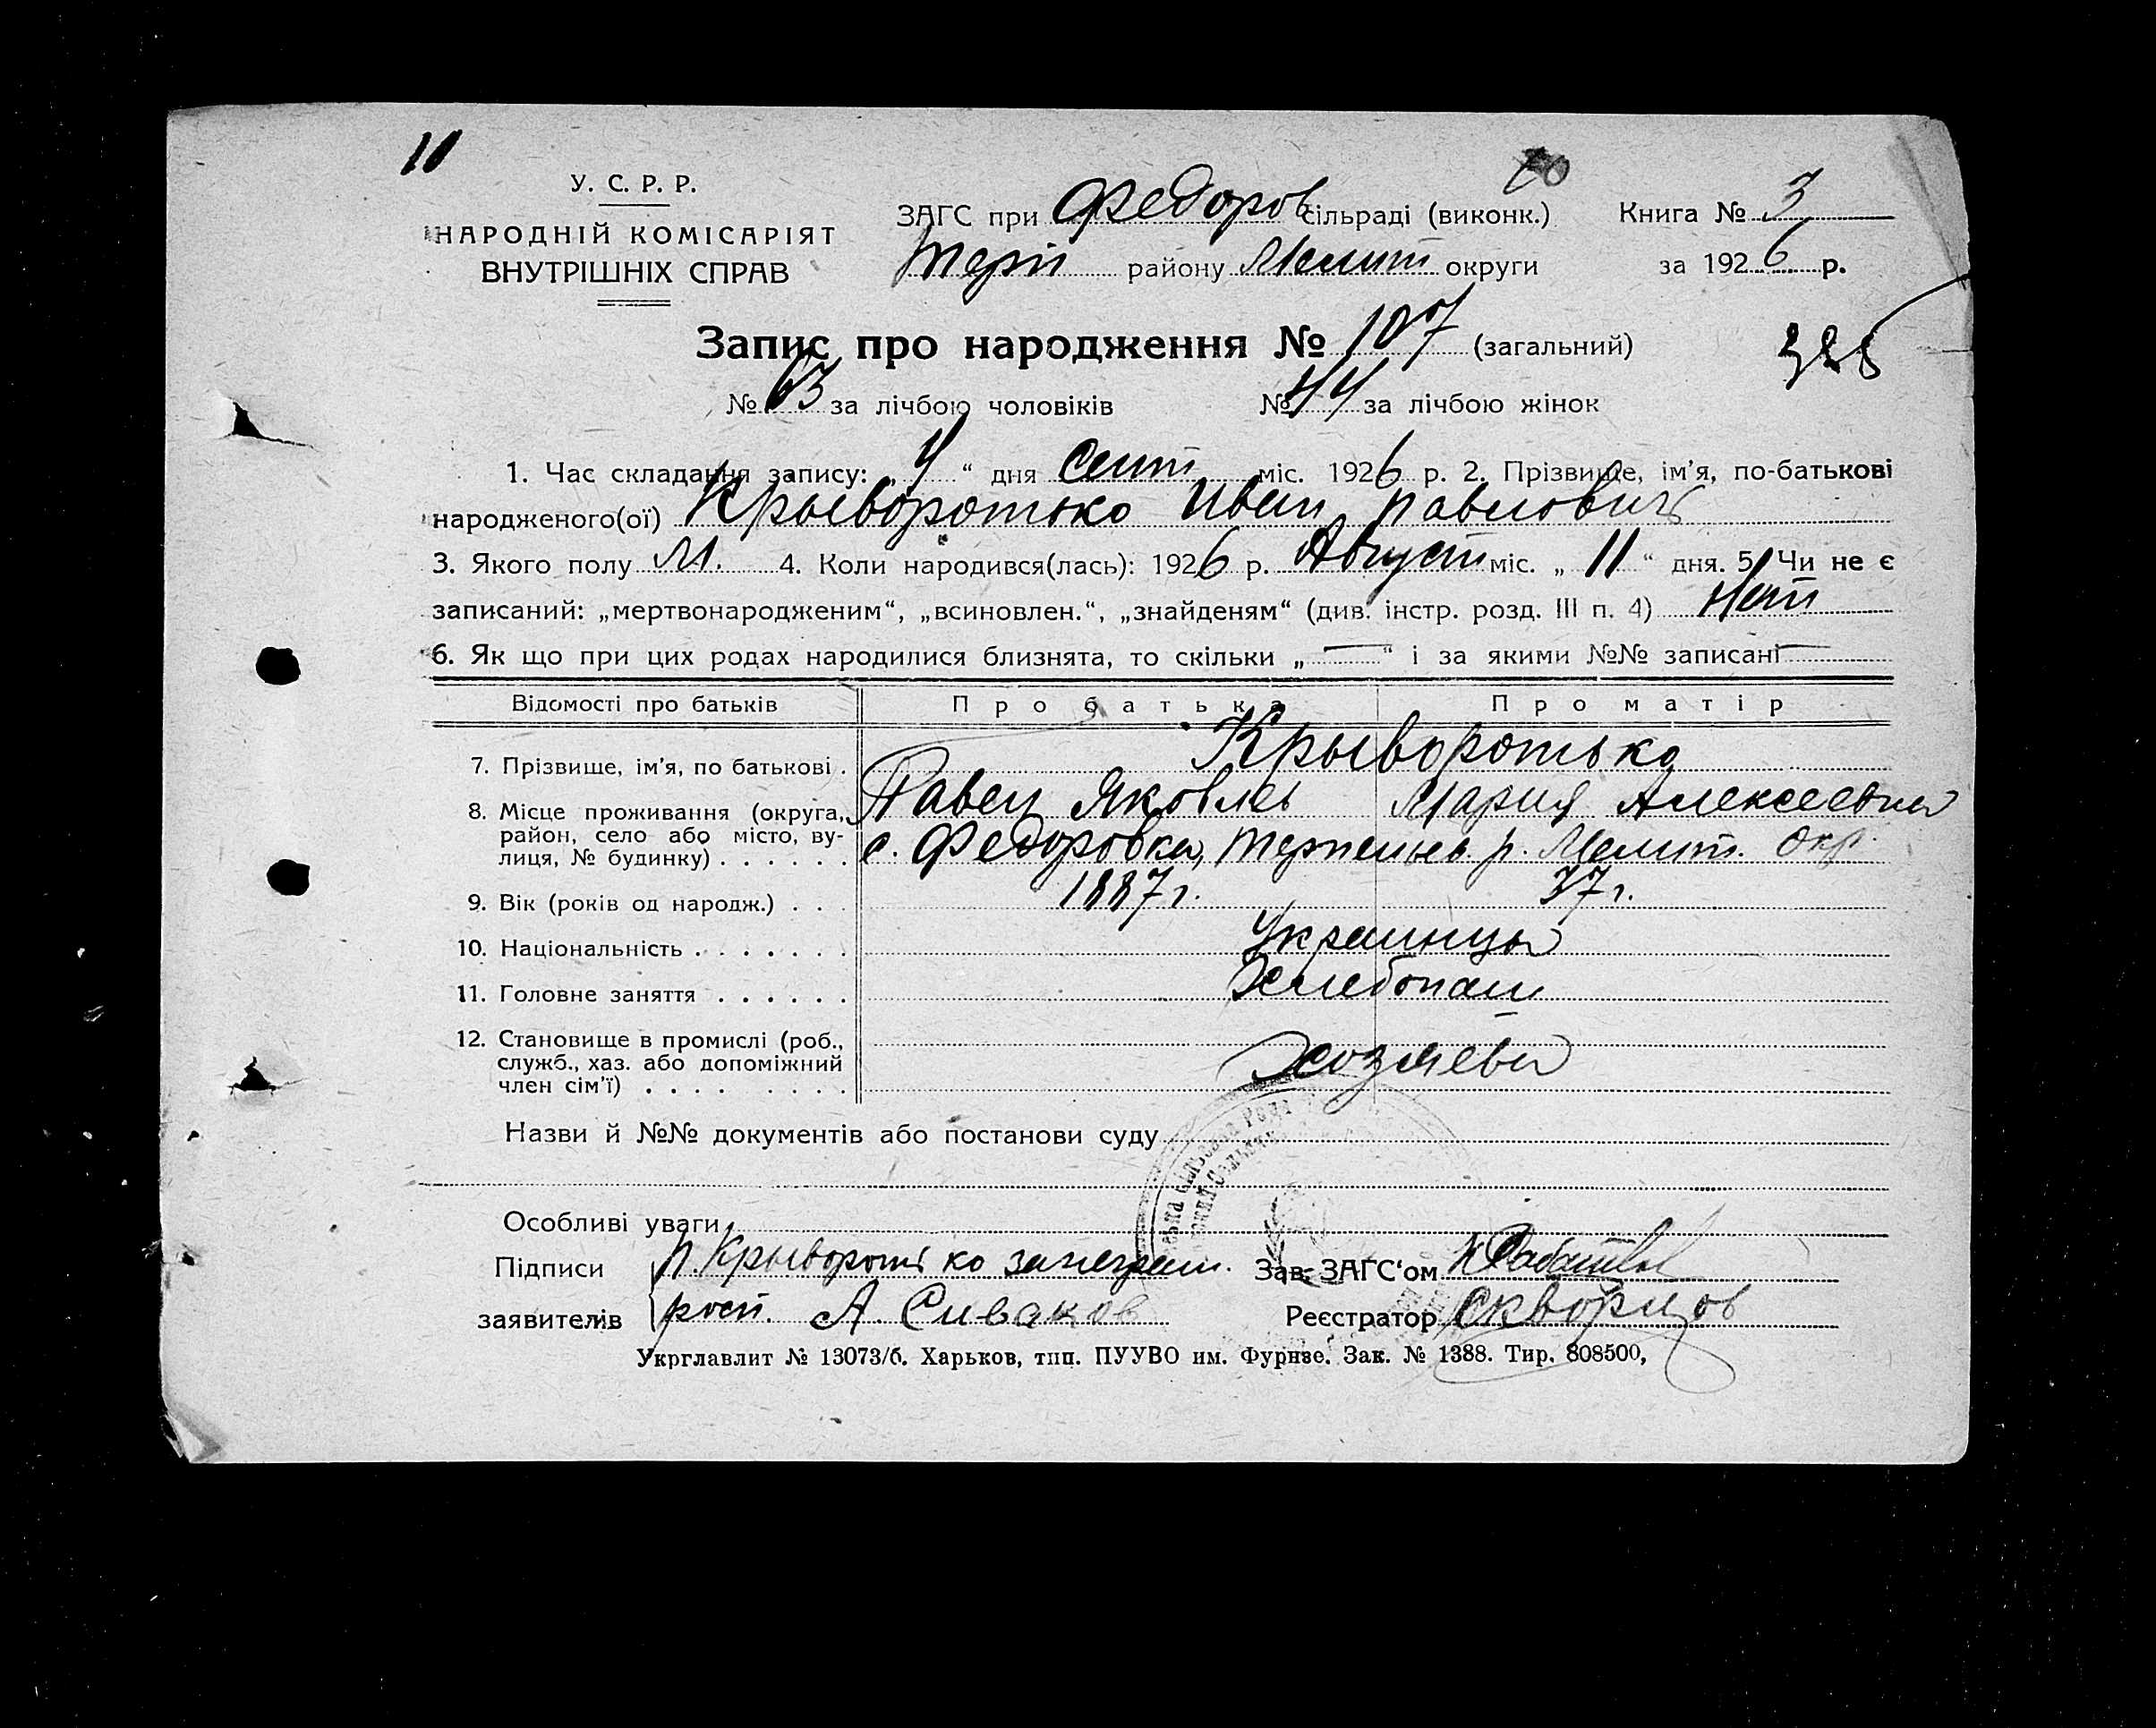 10
У. С. Р. Р.
НАРОДНІЙ КОМІСАРІЯТ
ВНУТРІШНІХ СПРАВ
ЗАГС при Федоров сільраді (виконк.) Книга № 3
Терп району Мелит округи за 1926 р.
Запис про народження № 107 (загальний)
№ 63 за лічбою чоловіків № 44 за лічбою жінок
1. Час складання запису: „ 4 “ дня Сент міс. 1926 р. 2. Прізвище, ім’я, по-батькові
народженого(ої) Крыворотько Иван Павлович
3. Якого полу М. 4. Коли народився(лась): 1926 р. Август міс. „ 11 “ дня. 5. Чи не є
записаний: „мертвонародженим“, „всиновлен.“, „знайденям“ (див. інстр. розд. III п. 4) Нет
6. Як що при цих родах народилися близнята, то скільки „ — “ і за якими №№ записані —
Відомості про батьків Про батька Про матір
7. Прізвище, ім’я, по батькові . Крыворотько
Павел Яковлев Мария Алексеевна
8. Місце проживання (округа,
район, село або місто, ву-
лиця, № будинку) . . . . . . с. Федоровка, Терпеньев. р. Мелит. Окр.
9. Вік (років од народж.) . . . 1887 г. 37 г.
10. Національність . . . . . . . Украинцы
11. Головне заняття . . . . . . Хлебопаш
12. Становище в промислі (роб.,
служб., хаз. або допоміжний
член сім’ї) . . . . . . . . Хозяева
Назви й №№ документів або постанови суду
Особливі уваги
Підписи П. Крыворотько за неграм. Зав. ЗАГС‘ом
заявителів росп. А. Сиваков Реєстратор Скворцов
Укрглавлит № 13073/б. Харьков, тип. ПУУВО им. Фурнзе. Зак. № 1388. Тир. 808500,